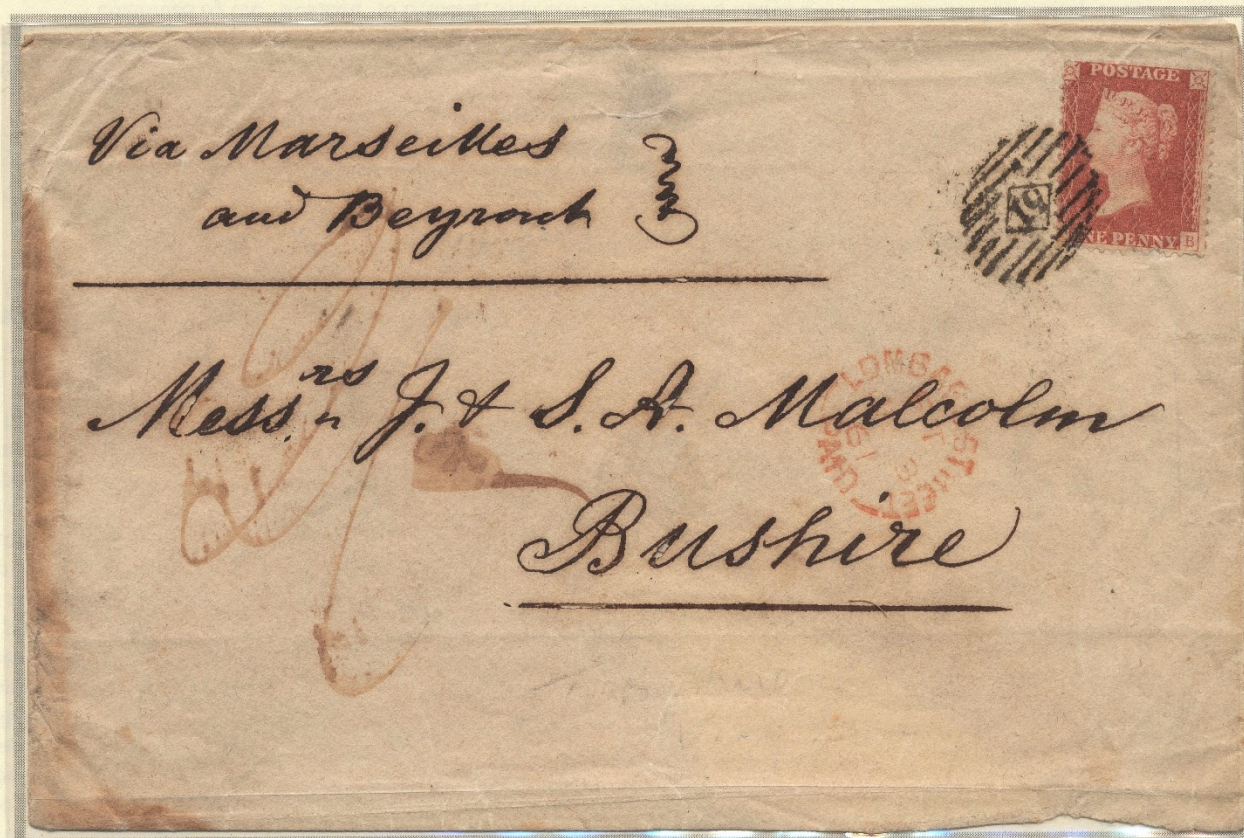 Via Marseilles
and Beyrout
POSTAGE
NE PENNY B
19
Messrs J. & S. A. Malcolm
LOMBARD STREET
PAID
Bushire